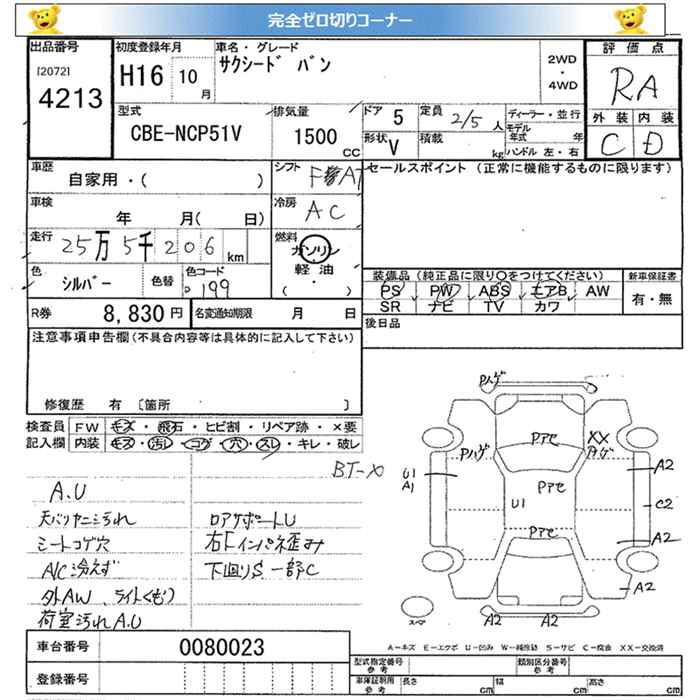 完全ゼロ切りコーナー
出品番号 初度登録年月 車名・グレード 評価点
[2072] 4213 H16 10月 サクシード バン 2WD・4WD RA
型式 排気量 ドア 5 定員 2/5人 ディーラー・並行 外装 内装
CBE-NCP51V 1500cc 形状 V 積載 kg モデル年式 年 ハンドル 左・右 C D
車歴 自家用・( ) シフト FAT セールスポイント(正常に機能するものに限ります)
車検 年 月( 日) 冷房 AC
走行 25万5千206km 燃料 ガソリン 軽油・( )
色 シルバー 色替 色コード 199 装備品(純正品に限り○をつけてください) 新車保証書
PS PW ABS エアB AW 有・無
SR ナビ TV カワ
R券 8,830円 名変通知期限 月 日 後日品
注意事項申告欄(不具合内容等は具体的に記入して下さい)
修復歴 有 〔箇所 〕
検査員 FW キズ・飛石・ヒビ割・リペア跡・×要
記入欄 内装 キズ・汚れ・コゲ・穴・スレ・キレ・破レ
BT-×
A.U
天バリヤニ汚れ ロアサポートU
シートコゲ穴 右Fインパネ歪み
A/C冷えず 下廻りS 一部C
外AW、ライトくもり
荷室汚れA.U
Pハゲ
Pハゲ Pアセ XX Pハゲ
U1 A1 A2
U1 Pアセ C2
Pアセ A2
A2
A2 A2
スペア
A-キズ E-エクボ U-凹み W-補修跡 S-サビ C-腐食 XX-交換済
車台番号 0080023 型式指定番号 参考 類別区分番号 参考
登録番号 車庫証明用 参考 長さ cm 幅 cm 高さ cm